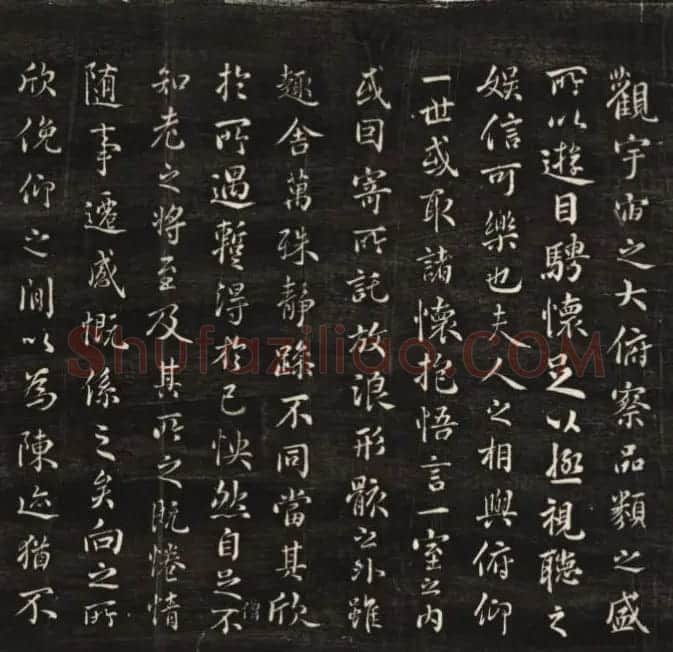 觀宇宙之大俯察品類之盛
所以遊目騁懷足以極視聽之
娛信可樂也夫人之相與俯仰
一世或取諸懷抱悟言一室之內
或因寄所託放浪形骸之外雖
趣舍萬殊靜躁不同當其欣
於所遇暫得於己怏然自足不
僧
知老之將至及其所之既惓情
隨事遷感慨係之矣向之所
欣俛仰之閒以為陳迹猶不
Shufaziliao.COM